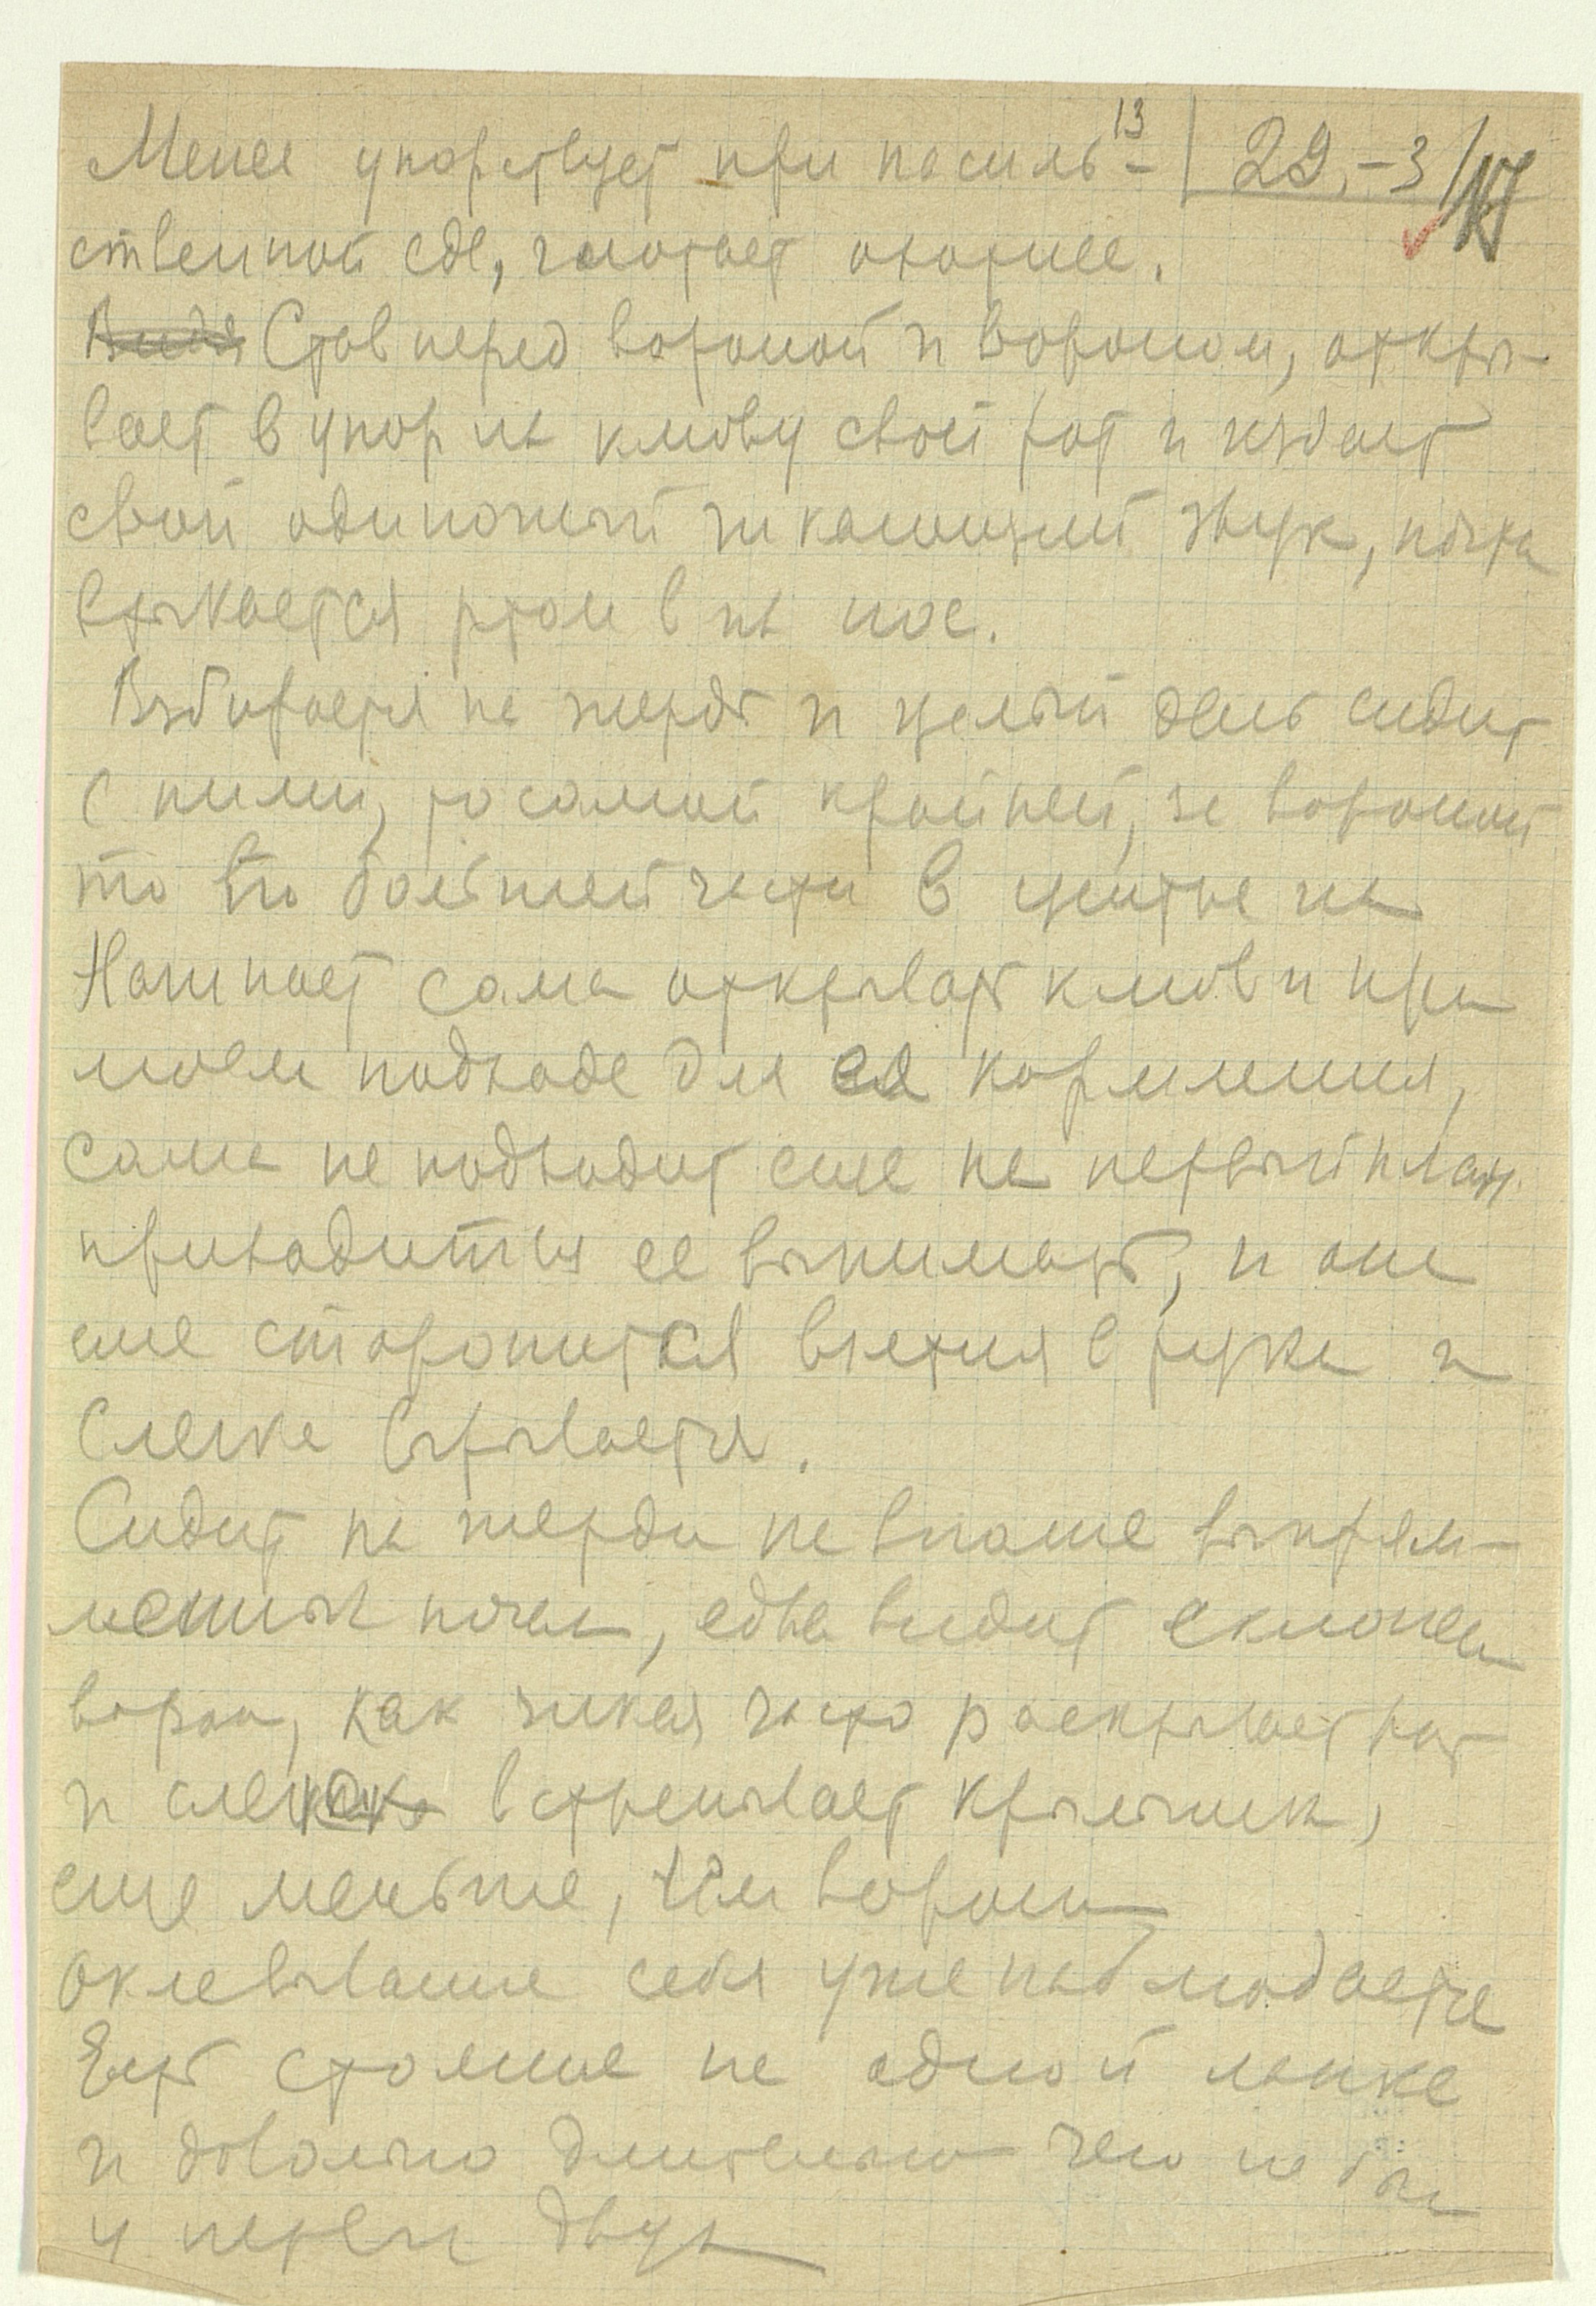 Менее упорствует при насиль- 13 22,-3/
ственной еде, глотает охотнее.
Видя Став перед вороной и вороном, откры-
вает в упор их клюву свой рот и издает
свой одиночный чикающий звук, почти
втыкается ртом в их нос.
Взбирается на жердь и целый день сидит
с ними, то самой крайней, за вороной
то по большей части в центре их
Начинает сама открывать клюв и при
моем подходе для ее кормления,
сама не подходит еще на первый план
приходится ее вынимать, и она
еще сторонится взятия в руки и
слегка вырывается.
Сидит на жерди не вполне выпрям-
ленных ногах, едва видит
ворон, как чикая часто раскрывает рот
и слегка встряхивает крылышки,
еще меньше, чем ворона
Оклевывание себя уже наблюдается
Есть стояние на одной лапке
и довольно длительно чего не было
у первых двух